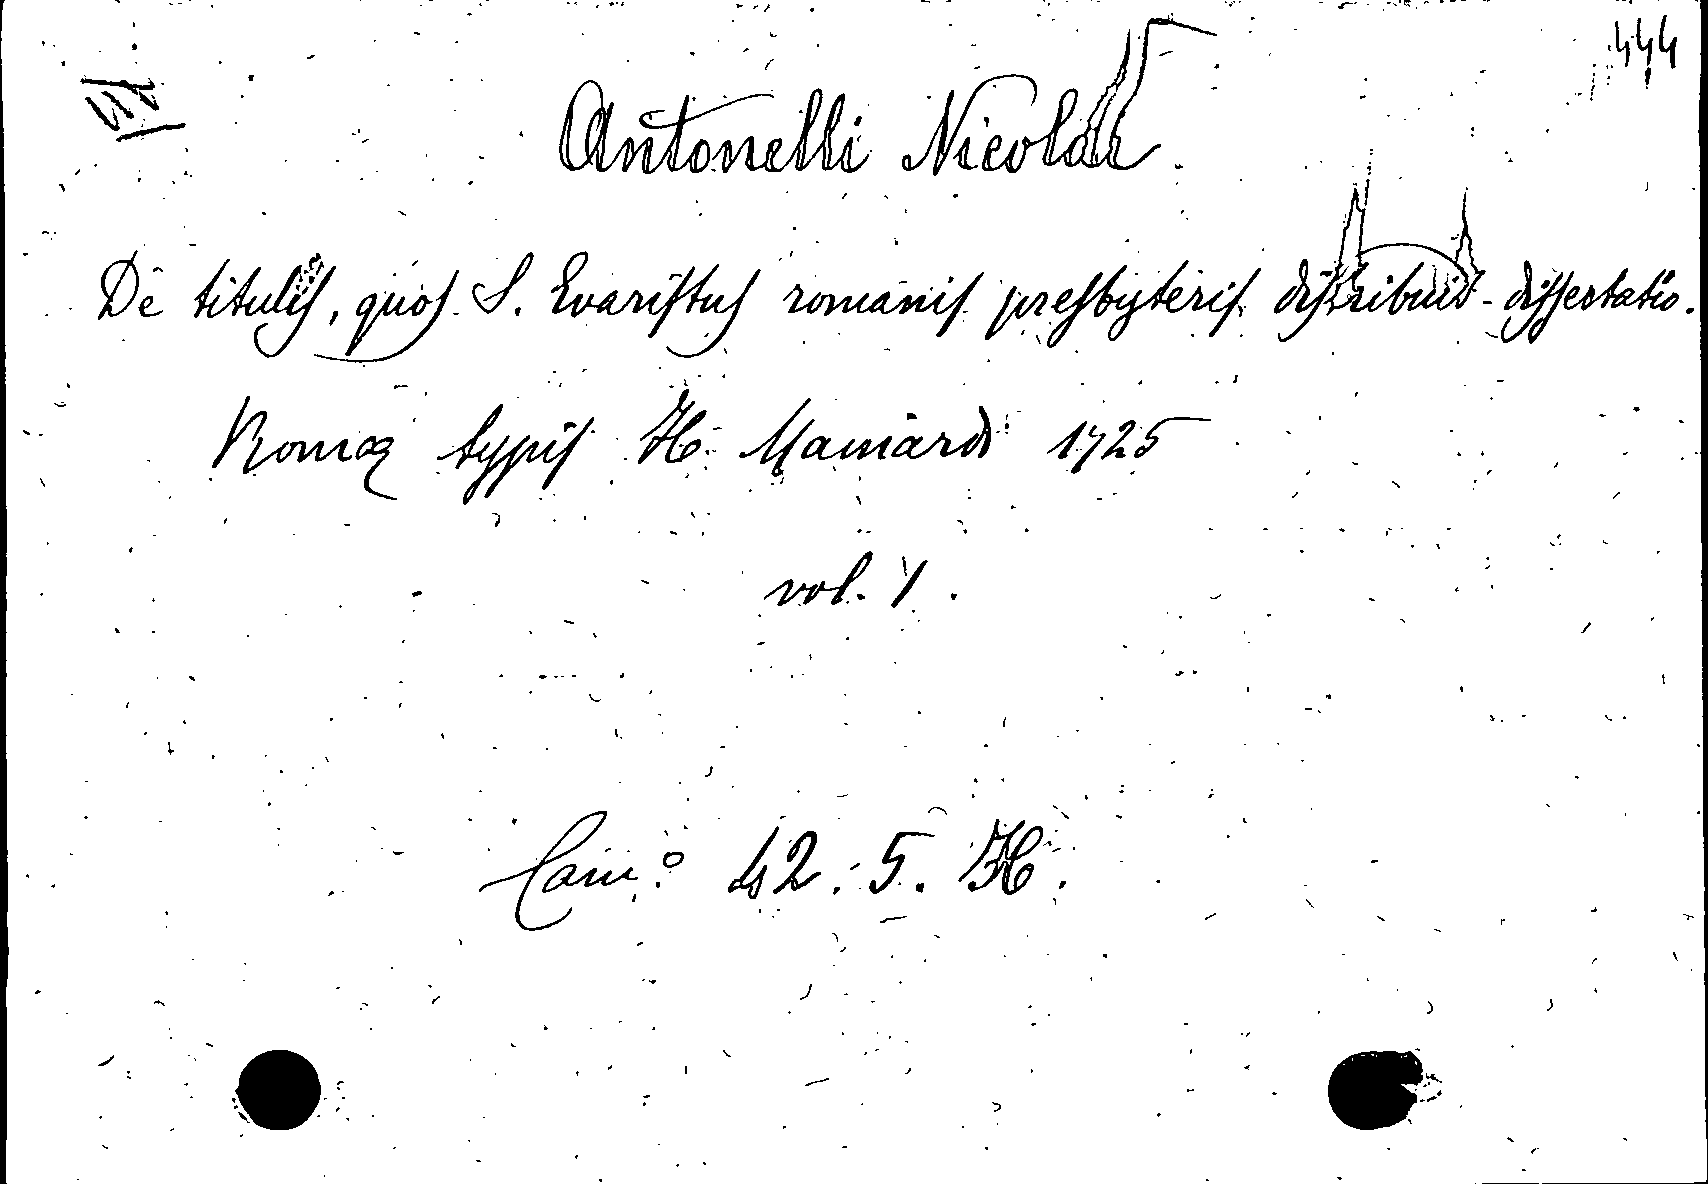 444
Antonelli Nicolai
De titulis, quos S. Evaristus romanis presbyteris distribuit dissertatio.
Romae typis H. Mainardi 1725
vol. 1.
Cam.º 42. 5. H.